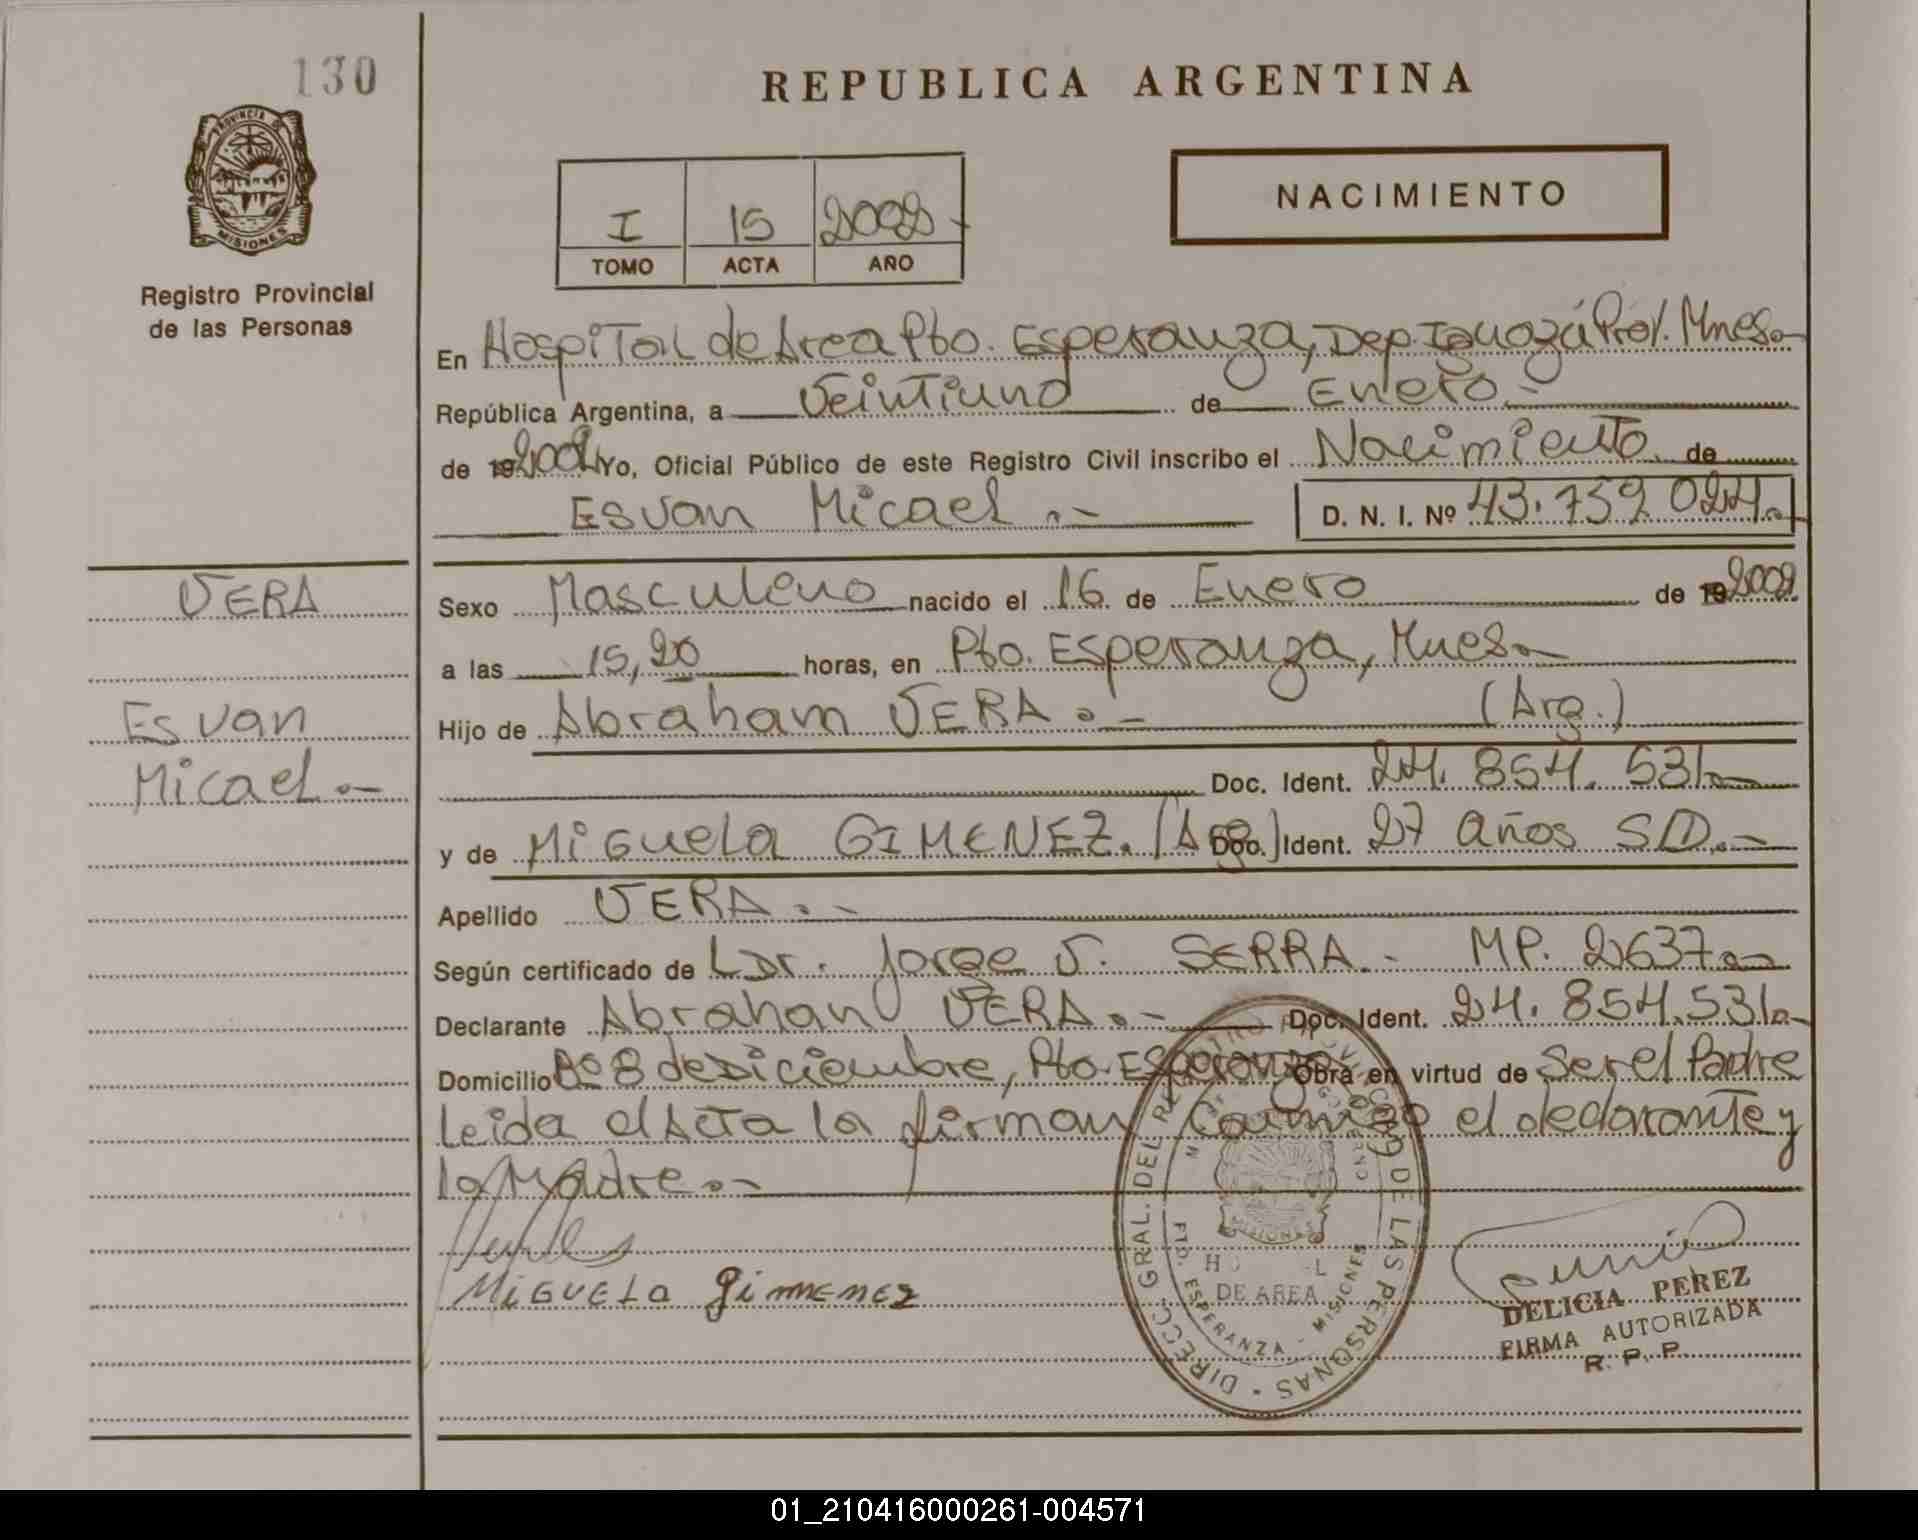 130
REPUBLICA ARGENTINA
PROVINCIA DE
MISIONES
Registro Provincial
de las Personas
I 15 2002.-
TOMO ACTA AÑO
NACIMIENTO
En Hospital de Area Pto. Esperanza, Dep. Iguazú Prov. Mnes.-
República Argentina, a Veintiuno de Enero.-
de 2002 Yo, Oficial Público de este Registro Civil inscribo el Nacimiento de
Esvan Micael.- D. N. I. Nº 43.759.024.-
VERA
Esvan
Micael.-
Sexo Masculino nacido el 16 de Enero de 2002
a las 15,20 horas, en Pto. Esperanza, Mnes.-
Hijo de Abraham VERA.- (Arg.)
Doc. Ident. 24.854.531.-
y de Miguela GIMENEZ. (Arg.) Doc. Ident. 27 años S/D.-
Apellido VERA.-
Según certificado de Dr. Jorge V. SERRA.- MP. 2637.-
Declarante Abrahan VERA.- Doc. Ident. 24.854.531.-
Domicilio Bº 8 de Diciembre, Pto. Esperanza Obra en virtud de Ser el Padre
Leida el Acta la firman conmigo el declarante y
la Madre.-
MiGUELa Gimenez
DIRECC. GRAL. DEL REGISTRO PROVINCIAL DE LAS PERSONAS
DE AREA
PTO. ESPERANZA - MISIONES
DELICIA PEREZ
FIRMA AUTORIZADA
R. P. P.
01_210416000261-004571